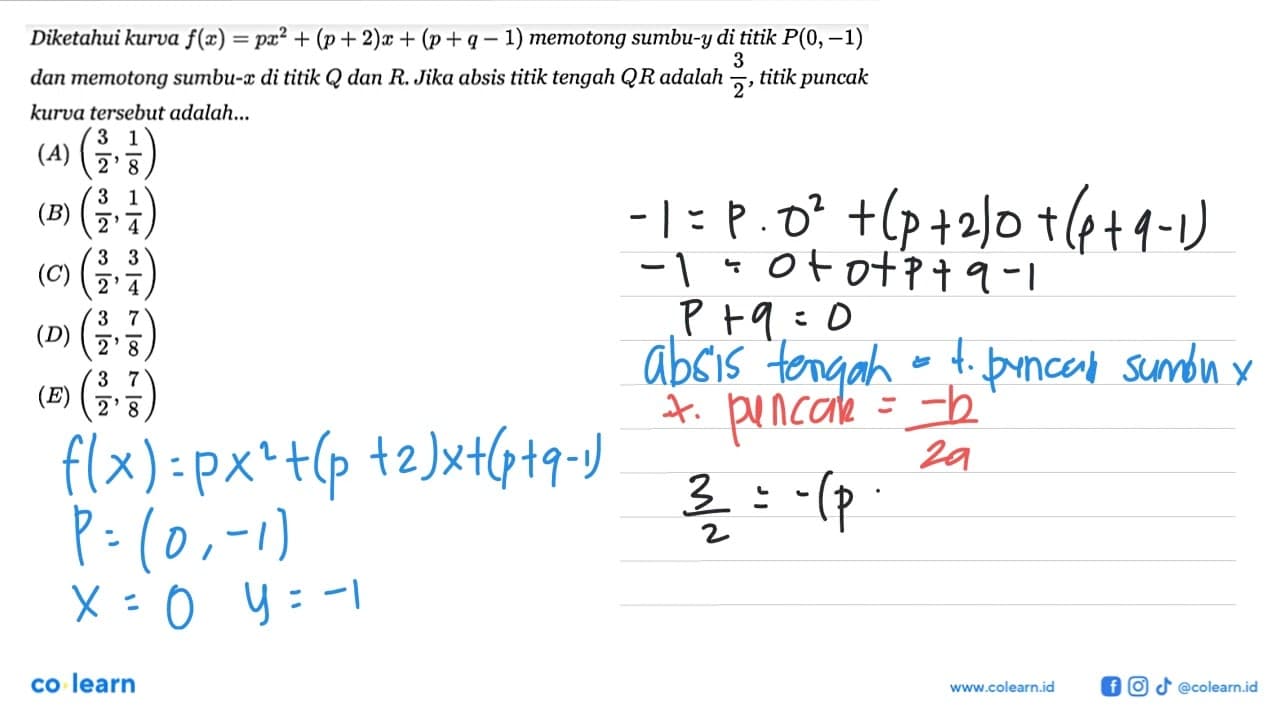 Diketahui kurva f(x) = px² + (p + 2)x + (p + q − 1) memotong sumbu-y di titik P(0, −1)
dan memotong sumbu-x di titik Q dan R. Jika absis titik tengah QR adalah 3/2, titik puncak
kurva tersebut adalah...
(A) (3/2, 1/8)
(B) (3/2, 1/4)
(C) (3/2, 3/4)
(D) (3/2, 7/8)
(E) (3/2, 7/8)
f(x)=px²+(p+2)x+(p+q-1)
P=(0,-1)
x=0 y=-1
-1 = p.0²+(p+2)0+(p+q-1)
-1 = 0+0+p+q-1
p+q=0
absis tengah = t. puncak sumbu x
x. puncak = -b/2a
3/2 = -(p
co learn
www.colearn.id
@colearn.id